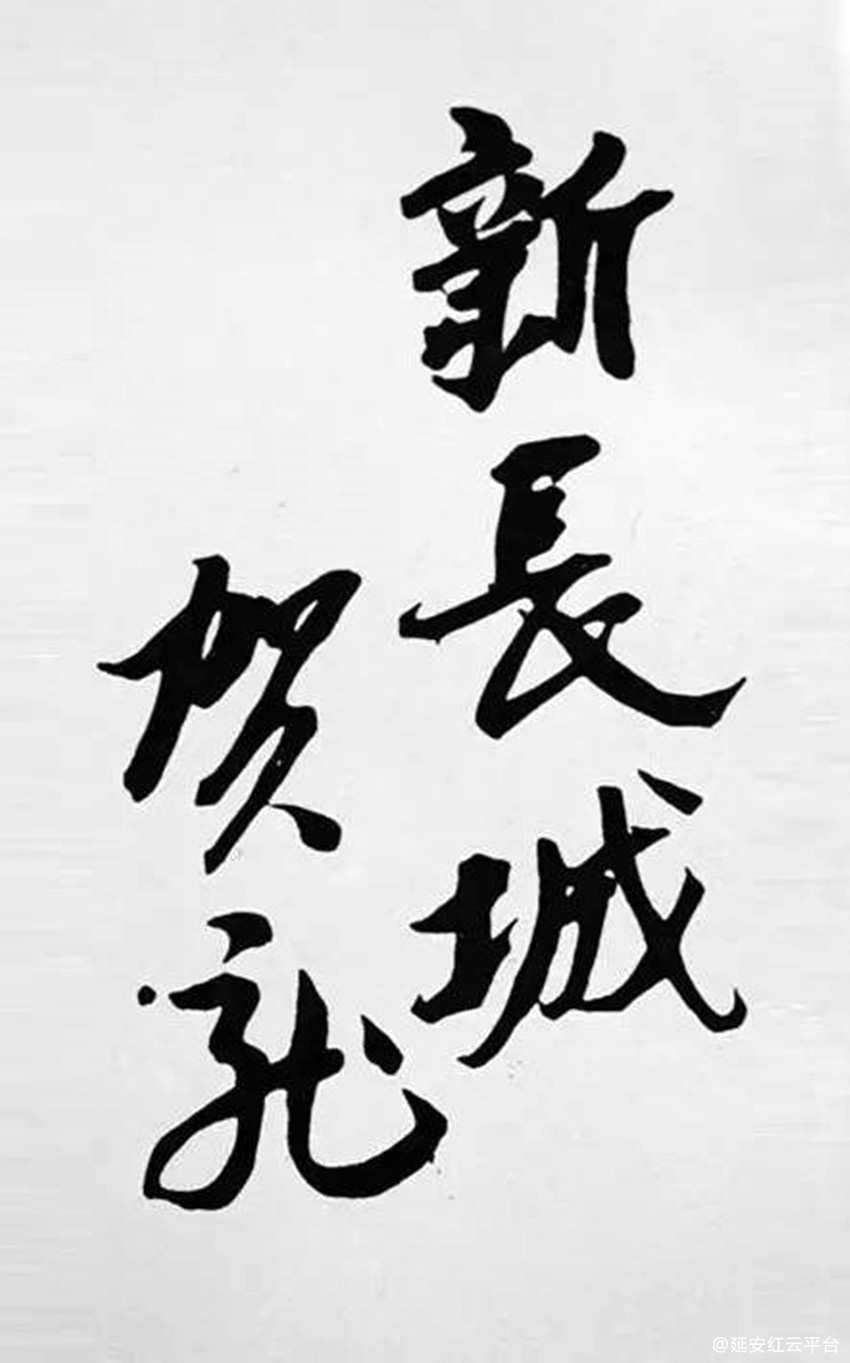 新長城
贺龙
@延安红云平台